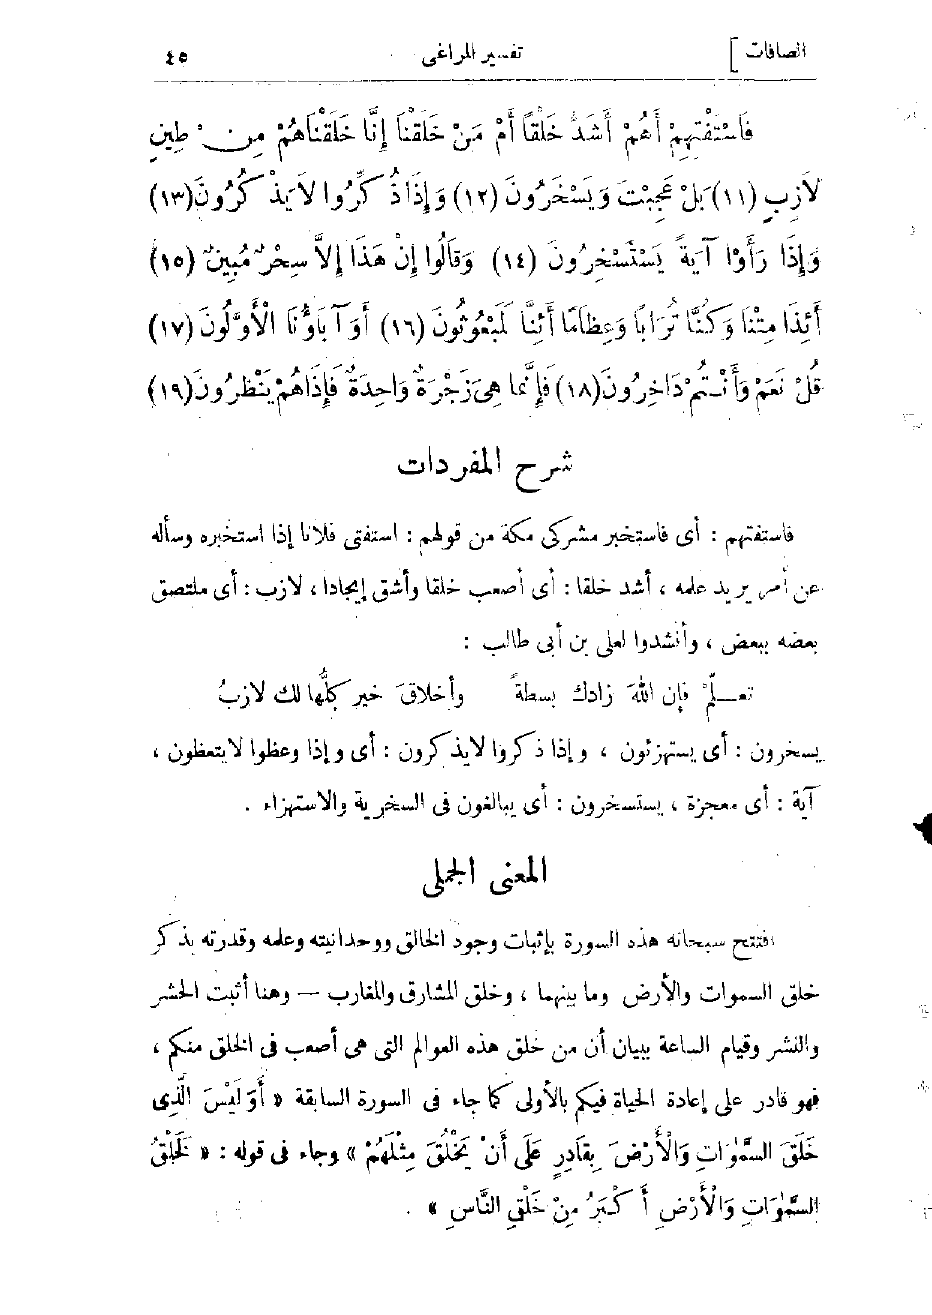 الصافات ] تفسير المراغى ٤٥
فَاسْتَفْتِهِمْ أَهُمْ أَشَدُّ خَلْقاً أَمْ مَنْ خَلَقْنَا إِنَّا خَلَقْنَاهُمْ مِنْ طِينٍ
لاَزِبٍ (١١) بَلْ عَجِبْتَ وَيَسْخَرُونَ (١٢) وَإِذَا ذُكِّرُوا لاَ يَذْكُرُونَ (١٣)
وَإِذَا رَأَوْا آيَةً يَسْتَسْخِرُونَ (١٤) وَقَالُوا إِنْ هَذَا إِلاَّ سِحْرٌ مُبِينٌ (١٥)
أَئِذَا مِتْنَا وَكُنَّا تُرَابًا وَعِظَامًا أَئِنَّا لَمَبْعُوثُونَ (١٦) أَوَآبَاؤُنَا الْأَوَّلُونَ (١٧)
قُلْ نَعَمْ وَأَنْتُمْ دَاخِرُونَ (١٨) فَإِنَّمَا هِىَ زَجْرَةٌ وَاحِدَةٌ فَإِذَا هُمْ يَنْظُرُونَ (١٩)
شرح المفردات
فاستفتهم : أى فاستخبر مشركى مكة من قولهم : استفتى فلانا إذا استخبره وسأله
عن أمر يريد علمه ، أشد خلقا : أى أصعب خلقا وأشق إيجادا ، لازب : أى ملتصق
بعضه ببعض ، وأنشدوا لعلى بن أبى طالب :
تعـلّمْ فإن اللهَ زادك بسطةً وأخلاقَ خير كلُّها لك لازبُ
يسخرون : أى يستهزئون ، وإذا ذكروا لايذكرون : أى وإذا وعظوا لايتعظون ،
آية : أى معجزة ، يستسخرون : أى يبالغون فى السخرية والاستهزاء .
المعنى الجملى
افتتح سبحانه هذه السورة بإثبات وجود الخالق ووحدانيته وعلمه وقدرته بذكر
خلق السموات والأرض وما بينهما ، وخلق المشارق والمغارب — وهنا أثبت الحشر
والنشر وقيام الساعة ببيان أن من خلق هذه العوالم التى هى أصعب فى الخلق منكم ،
فهو قادر على إعادة الحياة فيكم بالأولى كما جاء فى السورة السابقة « أَوَلَيْسَ الَّذِى
خَلَقَ السَّمٰوَاتِ وَالْأَرْضَ بِقَادِرٍ عَلَى أَنْ يَخْلُقَ مِثْلَهُمْ » وجاء فى قوله : « لَخَلْقُ
السَّمٰوَاتِ وَالْأَرْضِ أَكْبَرُ مِنْ خَلْقِ النَّاسِ » .